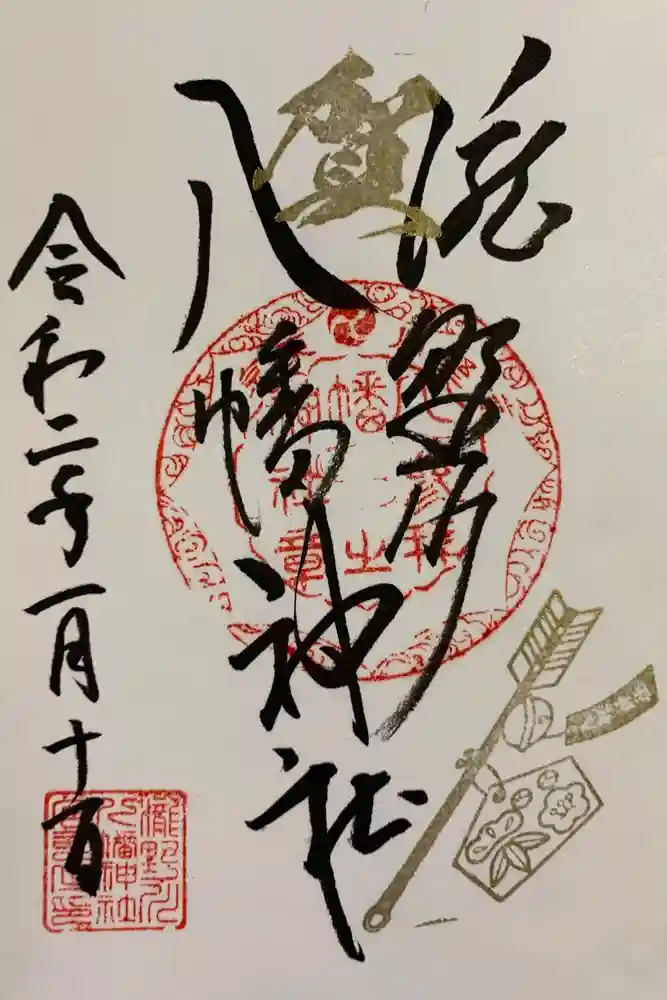 賀
滝野川
八幡神社
令和二年一月十一日
瀧野川
八幡神社